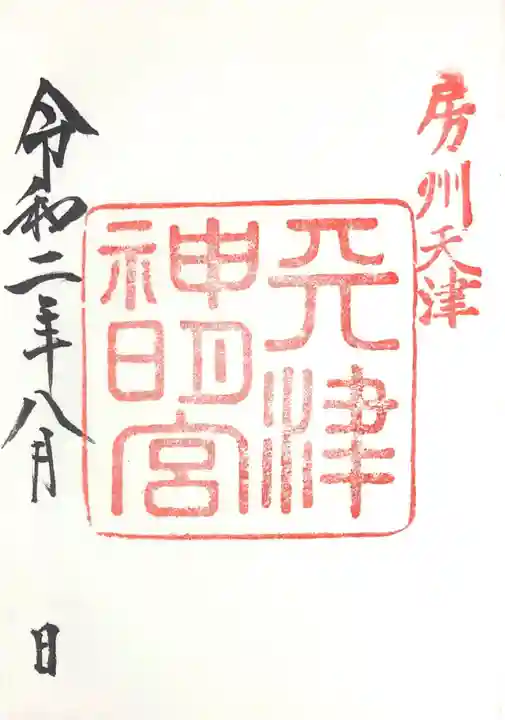 房州天津
天津
神明宮
令和二年八月 日